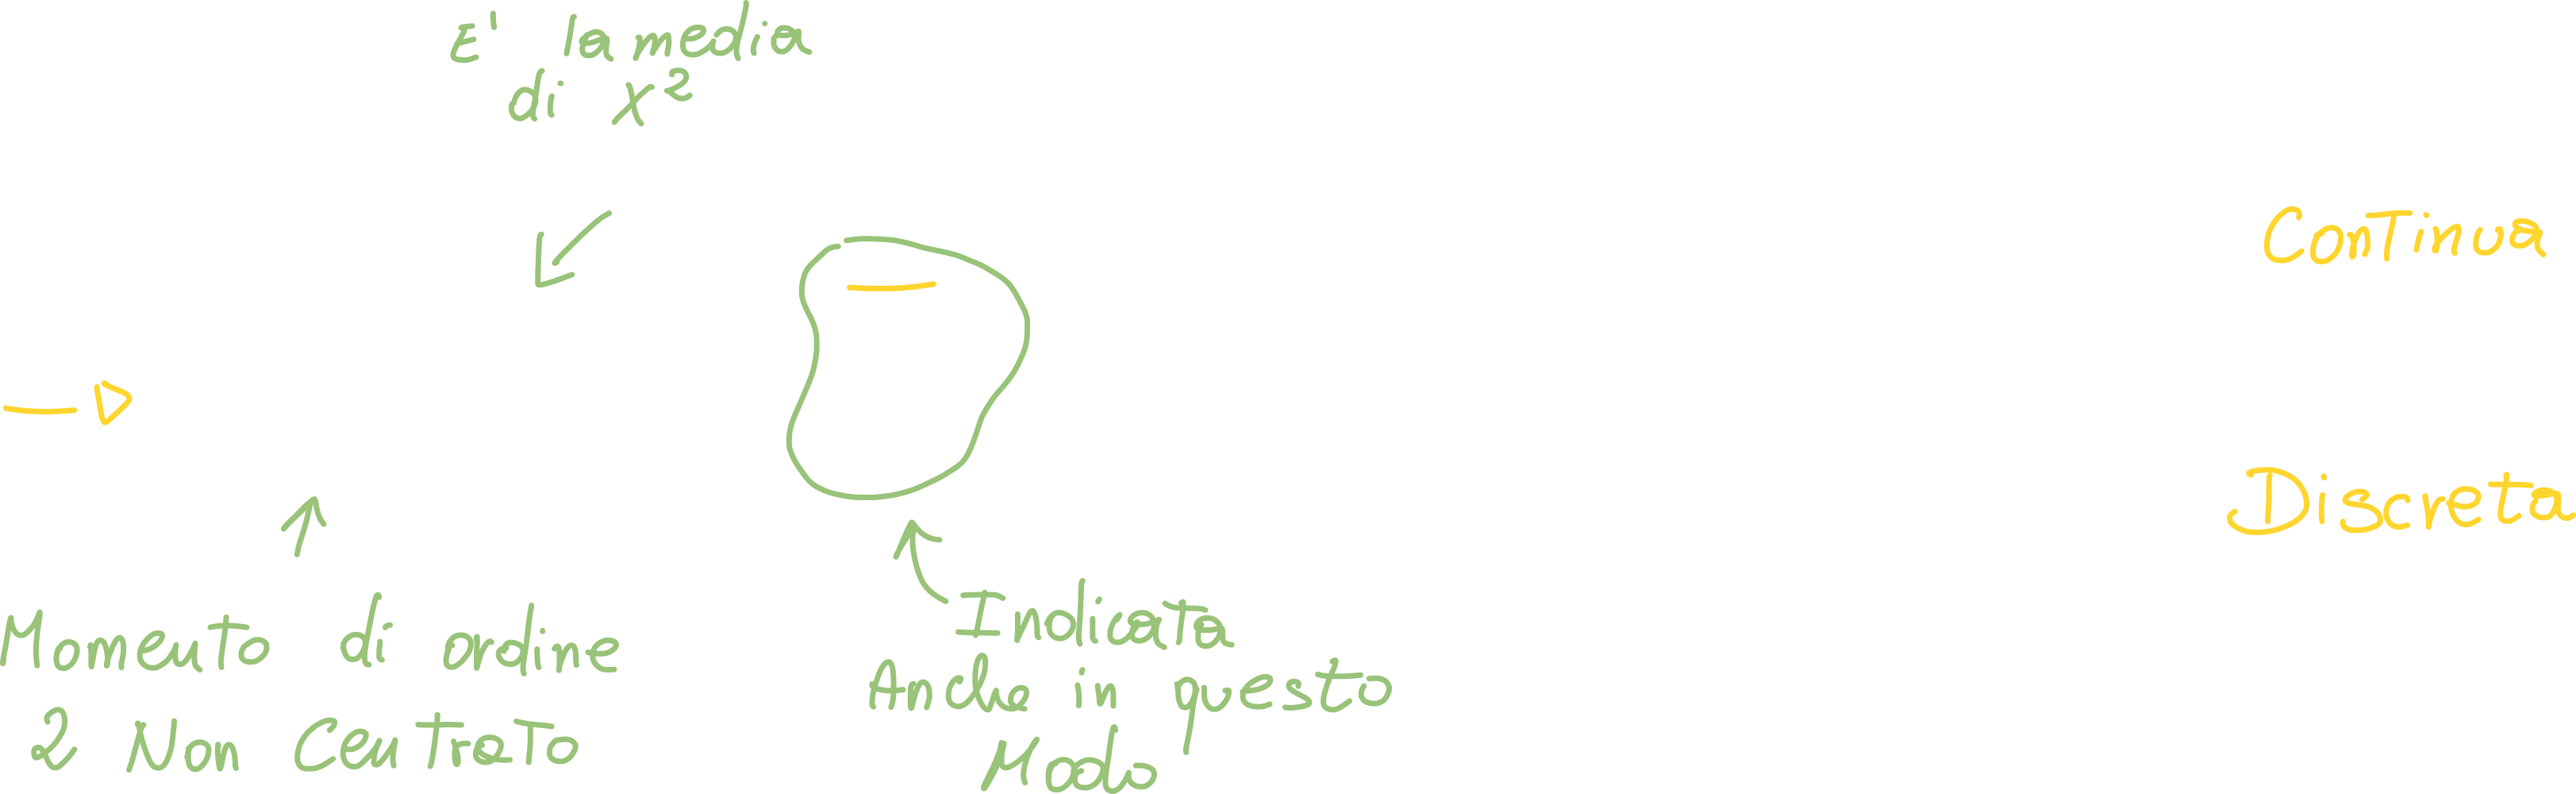 E' la media
di X²
Continua
Discreta
Momento di ordine
2 Non Centrato
Indicata
Anche in questo
Modo